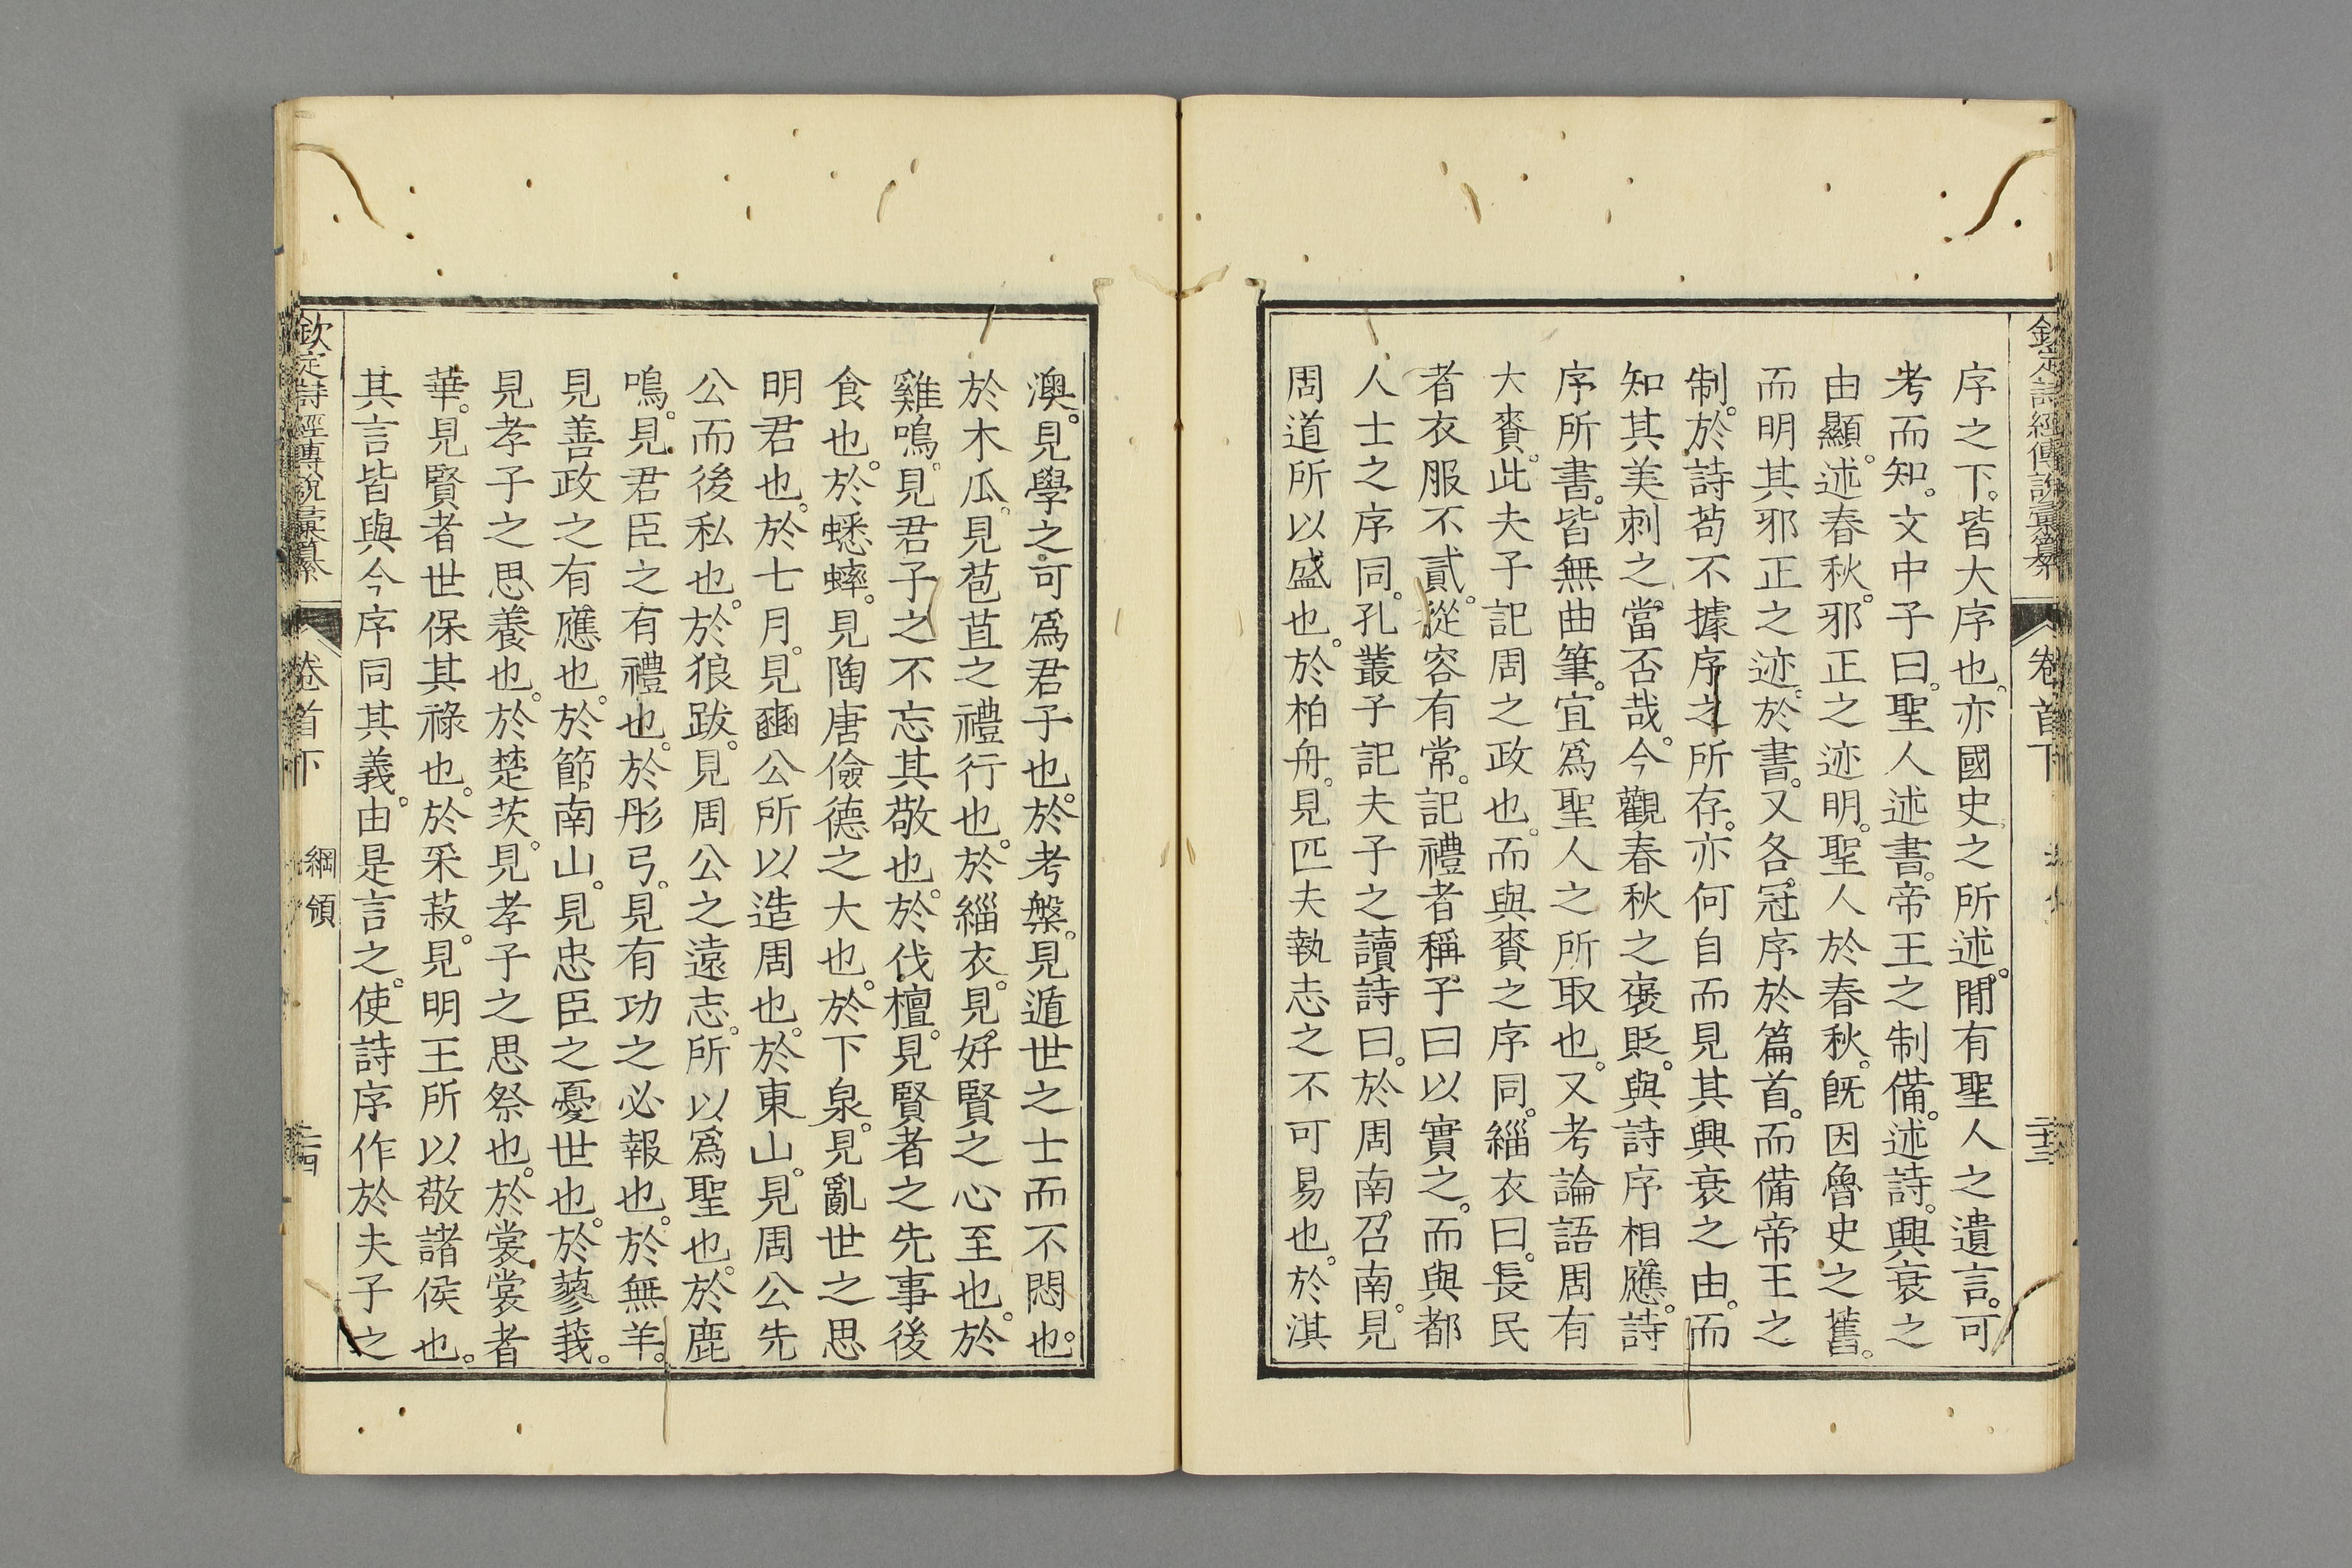 欽定詩經傳說彙纂 卷首下 二十三
序之下。皆大序也。亦國史之所述。閒有聖人之遺言。可
考而知。文中子曰。聖人述書。帝王之制備。述詩。興衰之
由顯。述春秋。邪正之迹明。聖人於春秋。旣因魯史之舊。
而明其邪正之迹。於書。又各冠序於篇首。而備帝王之
制。於詩苟不據序之所存。亦何自而見其興衰之由。而
知其美刺之當否哉。今觀春秋之褒貶。與詩序相應。詩
序所書。皆無曲筆。宜爲聖人之所取也。又考論語周有
大賚。此夫子記周之政也。而與賚之序同。緇衣曰。長民
者衣服不貳。從容有常。記禮者稱子曰以實之。而與都
人士之序同。孔叢子記夫子之讀詩曰。於周南召南。見
周道所以盛也。於柏舟。見匹夫執志之不可易也。於淇
澳。見學之可爲君子也。於考槃。見遁世之士而不悶也。
於木瓜。見苞苴之禮行也。於緇衣。見好賢之心至也。於
雞鳴。見君子之不忘其敬也。於伐檀。見賢者之先事後
食也。於蟋蟀。見陶唐儉德之大也。於下泉。見亂世之思
明君也。於七月。見豳公所以造周也。於東山。見周公先
公而後私也。於狼跋。見周公之遠志。所以爲聖也。於鹿
鳴。見君臣之有禮也。於彤弓。見有功之必報也。於無羊。
見善政之有應也。於節南山。見忠臣之憂世也。於蓼莪。
見孝子之思養也。於楚茨。見孝子之思祭也。於裳裳者
華。見賢者世保其祿也。於采菽。見明王所以敬諸侯也。
其言皆與今序同其義。由是言之。使詩序作於夫子之
欽定詩經傳說彙纂 卷首下 綱領 二十四